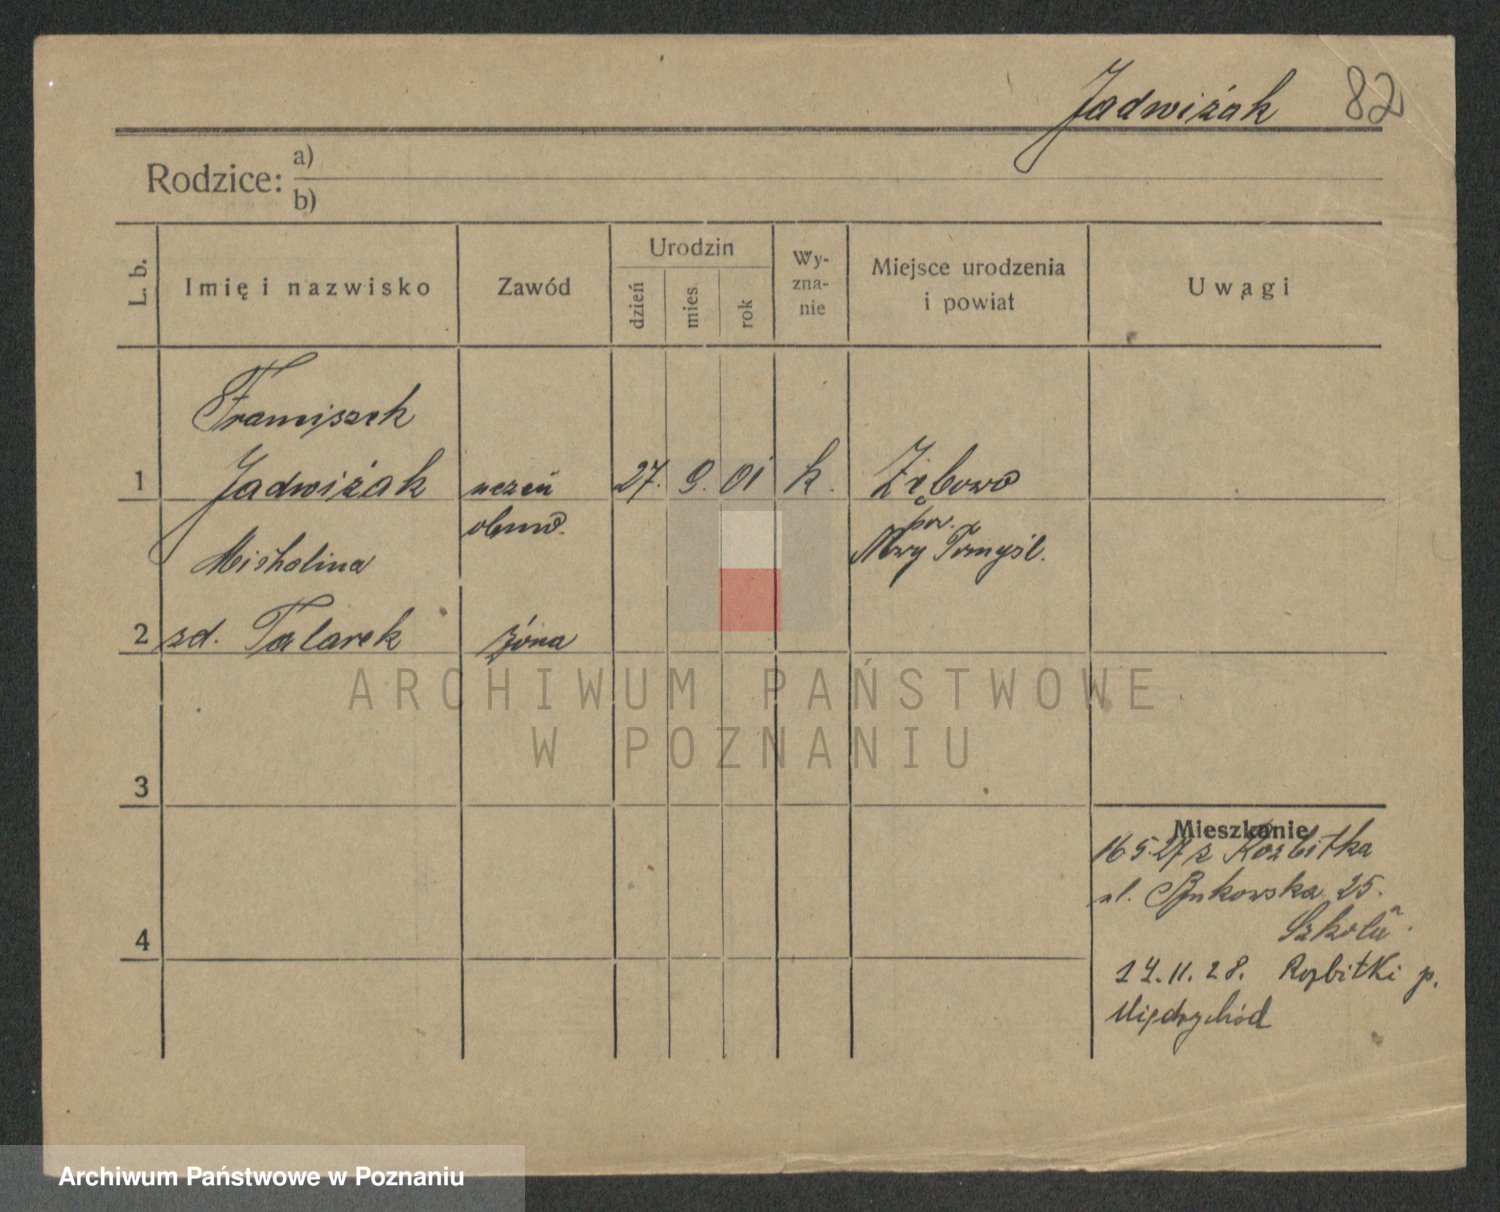 Jadwiżak 82
Rodzice: a)
b)
L. b.
Imię i nazwisko
Zawód
Urodzin
dzień
mies.
rok
Wy-
zna-
nie
Miejsce urodzenia
i powiat
Uwagi
Franciszek
1 Jadwiżak uczeń 27. 9. 01 k. Zębowo
obuw. pow.
Nowy Tomyśl.
Michalina
2 zd. Talarek żona
ARCHIWUM PAŃSTWOWE
W POZNANIU
3
4
Mieszkanie
16.5.27 z Rozbitka
ul. Bukowska 25.
Szkoła
14.11.28. Rozbitki p.
Międzychód
Archiwum Państwowe w Poznaniu